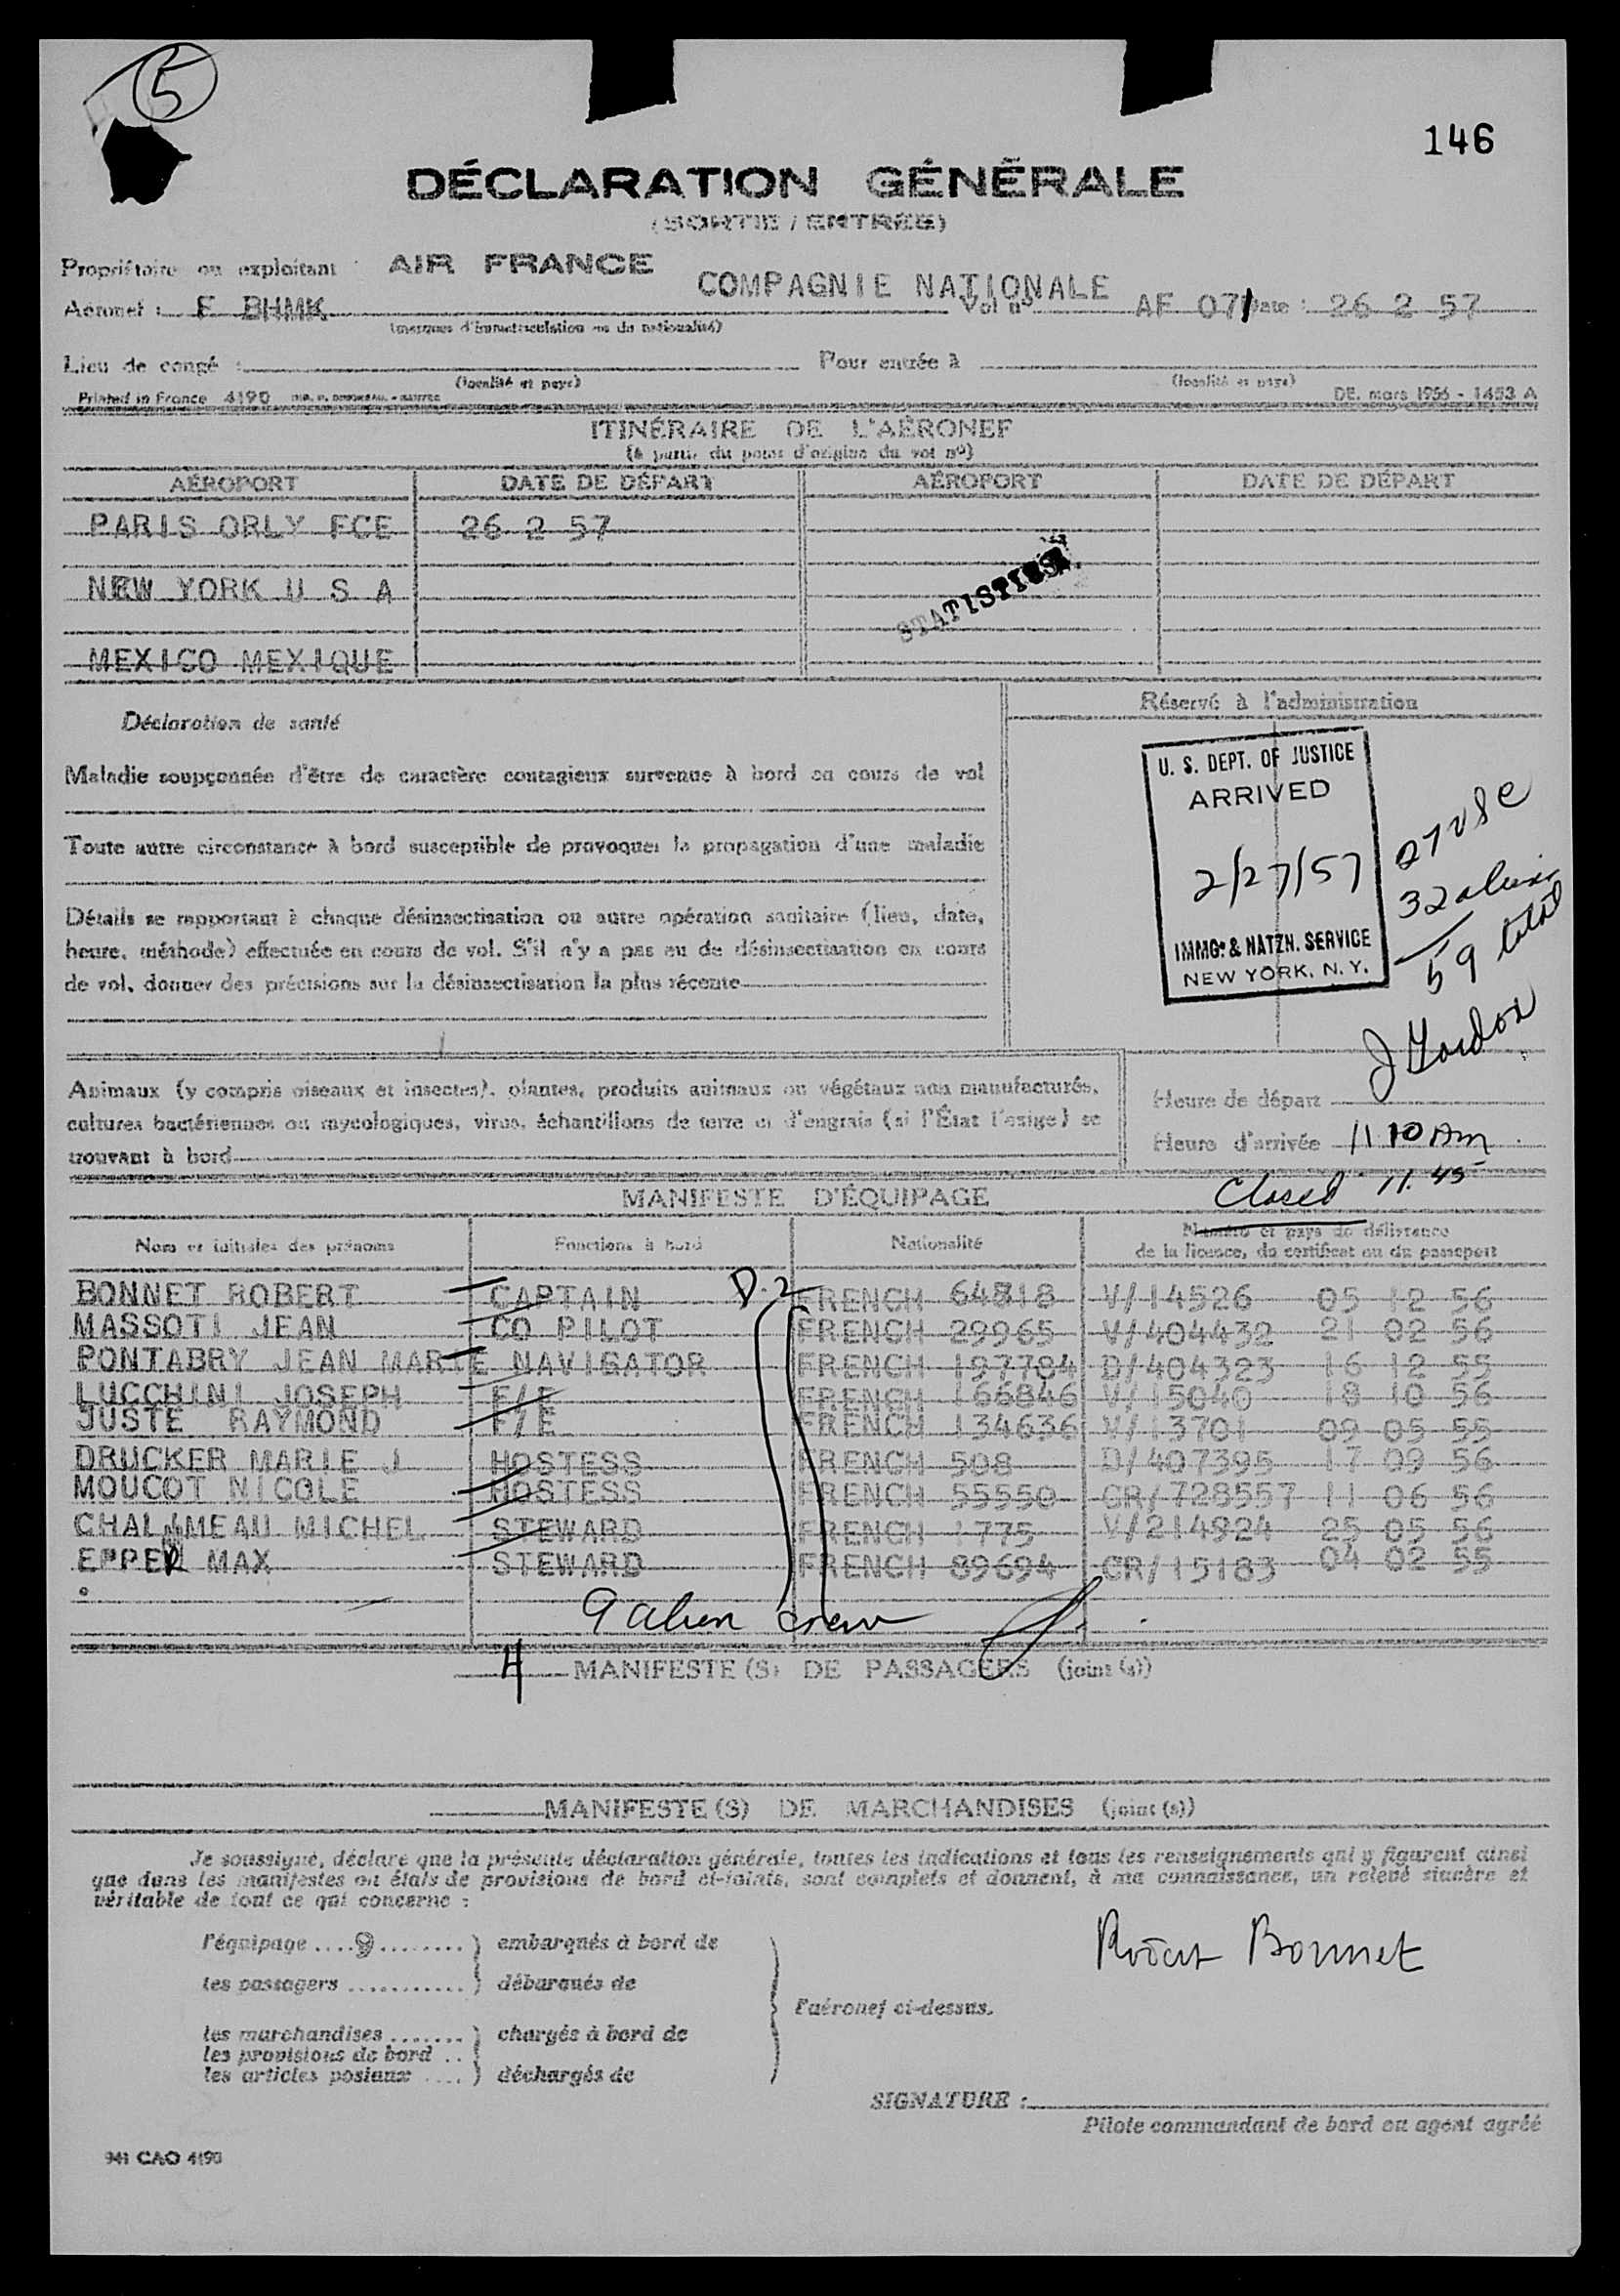 5
146
DÉCLARATION GÉNÉRALE
(SORTIE / ENTRÉE)
Propriétaire ou exploitant AIR FRANCE
COMPAGNIE NATIONALE
Aéronef : F BHMK Vol n° AF 071 Date : 26 2 57
(marques d'immatriculation ou de nationalité)
Lieu de congé : Pour entrée à
(localité et pays) (localité et pays)
Printed in France 4190 DE. mars 1956 - 1453 A
ITINÉRAIRE DE L'AÉRONEF
(à partir du point d'origine du vol n°)
AÉROPORT DATE DE DÉPART AÉROPORT DATE DE DÉPART
PARIS ORLY FCE 26 2 57
STATISTICS
NEW YORK U S A
MEXICO MEXIQUE
Déclaration de santé
Réservé à l'administration
Maladie soupçonnée d'être de caractère contagieux survenue à bord en cours de vol
Toute autre circonstance à bord susceptible de provoquer la propagation d'une maladie
Détails se rapportant à chaque désinsectisation ou autre opération sanitaire (lieu, date,
heure, méthode) effectuée en cours de vol. S'il n'y a pas eu de désinsectisation en cours
de vol, donner des précisions sur la désinsectisation la plus récente
U. S. DEPT. OF JUSTICE
ARRIVED
2/27/57
IMMG. & NATZN. SERVICE
NEW YORK, N. Y.
27 USC
32 alien
59 total
J Gordon
Animaux (y compris oiseaux et insectes), plantes, produits animaux ou végétaux non manufacturés,
cultures bactériennes ou mycologiques, virus, échantillons de terre et d'engrais (si l'État l'exige) se
trouvant à bord
Heure de départ
Heure d'arrivée 11 10 AM
Closed 11.45
MANIFESTE D'ÉQUIPAGE
Nom et initiales des prénoms Fonctions à bord Nationalité Numéro et pays de délivrance
de la licence, du certificat ou du passeport
D.2
BONNET ROBERT CAPTAIN FRENCH 64818 V/14526 05 12 56
MASSOTI JEAN CO PILOT FRENCH 29965 V/404432 21 02 56
PONTABRY JEAN MARIE NAVIGATOR FRENCH 197784 D/404323 16 12 55
LUCCHINI JOSEPH F/E FRENCH 166846 V/15040 18 10 56
JUSTE RAYMOND F/E FRENCH 134636 V/13701 09 05 55
DRUCKER MARIE J HOSTESS FRENCH 508 D/407395 17 09 56
MOUCOT NICOLE HOSTESS FRENCH 55550 CR/728557 11 06 56
CHALUMEAU MICHEL STEWARD FRENCH 1775 V/214924 25 05 56
EPPER MAX STEWARD FRENCH 89694 CR/15183 04 02 55
9 alien crew
4 MANIFESTE(S) DE PASSAGERS (joint (s))
MANIFESTE(S) DE MARCHANDISES (joint (s))
Je soussigné, déclare que la présente déclaration générale, toutes les indications et tous les renseignements qui y figurent ainsi
que dans les manifestes ou états de provisions de bord ci-joints, sont complets et donnent, à ma connaissance, un relevé sincère et
véritable de tout ce qui concerne :
l'équipage ....9........ ) embarqués à bord de
les passagers ........... ) débarqués de
l'aéronef ci-dessus.
les marchandises ....... ) chargés à bord de
les provisions de bord ..
les articles postaux .... ) déchargés de
Robert Bonnet
SIGNATURE :
Pilote commandant de bord ou agent agréé
941 CAO 4190